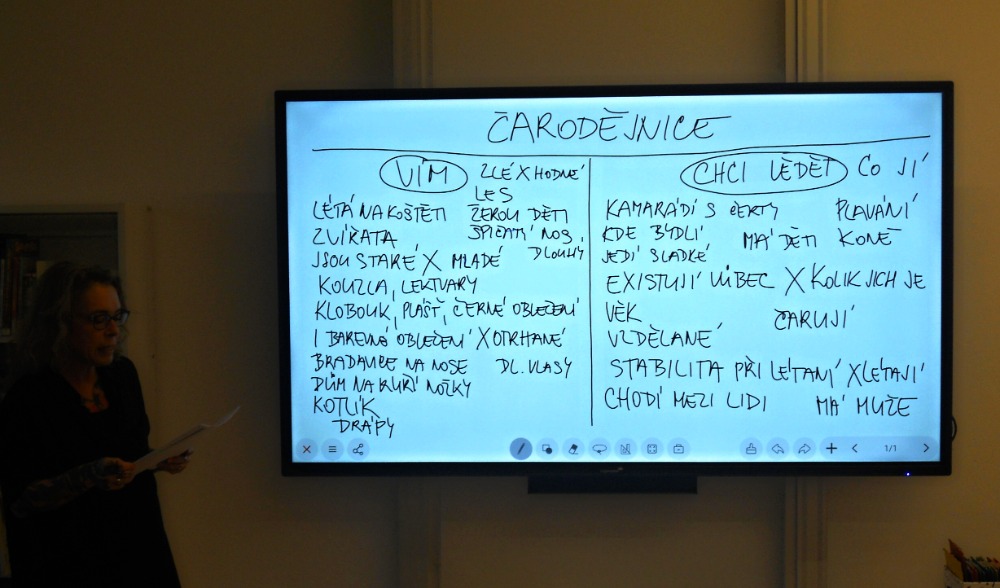 ČARODĚJNICE
VÍM
ZLÉ X HODNÉ
LES
LÉTÁ NA KOŠTĚTI ŽEROU DĚTI
ZVÍŘATA ŠPIČATÝ NOS
DLOUHÝ
JSOU STARÉ X MLADÉ
KOUZLA, LEKTVARY
KLOBOUK, PLÁŠŤ, ČERNÉ OBLEČENÍ
I BAREVNÉ OBLEČENÍ X OTRHANÉ
BRADAVICE NA NOSE DL. VLASY
DŮM NA KUŘÍ NOŽKY
KOTLÍK
DRÁPY
CHCI VĚDĚT CO JÍ
KAMARÁDÍ S ČERTY PLAVÁNÍ
KDE BYDLÍ MÁ DĚTI KONĚ
JEDÍ SLADKÉ
EXISTUJÍ VŮBEC X KOLIK JICH JE
VĚK ČARUJÍ
VZDĚLANÉ
STABILITA PŘI LÉTANÍ X LÉTAJÍ
CHODÍ MEZI LIDI MÁ MUŽE
1/1